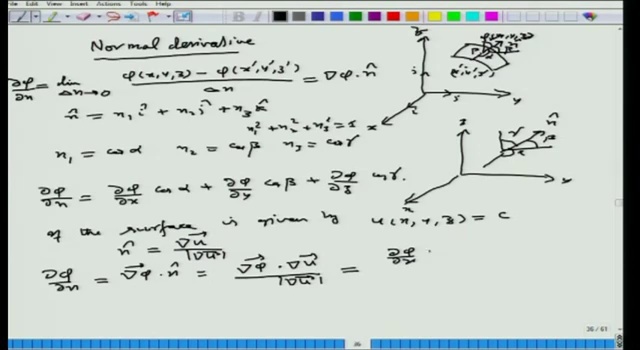 File Edit View Insert Actions Tools Help
Normal derivative
∂φ/∂n = lim Δn→0 φ(x,y,z) − φ(x',y',z') / Δn = ∇φ · n̂
n̂ = n₁ î + n₂ ĵ + n₃ k̂
n₁² + n₂² + n₃² = 1
n₁ = cosα n₂ = cosβ n₃ = cosγ
∂φ/∂n = ∂φ/∂x cosα + ∂φ/∂y cosβ + ∂φ/∂z cosγ.
If the surface is given by u(x,y,z) = c
n̂ = ∇u / |∇u|
∂φ/∂n = ∇φ · n̂ = ∇φ · ∇u / |∇u| = ∂φ/∂x ·
z
φ(x,y,z)
(x',y',z')
y
x
z
n̂
γ
β
α
x
26 / 61
26